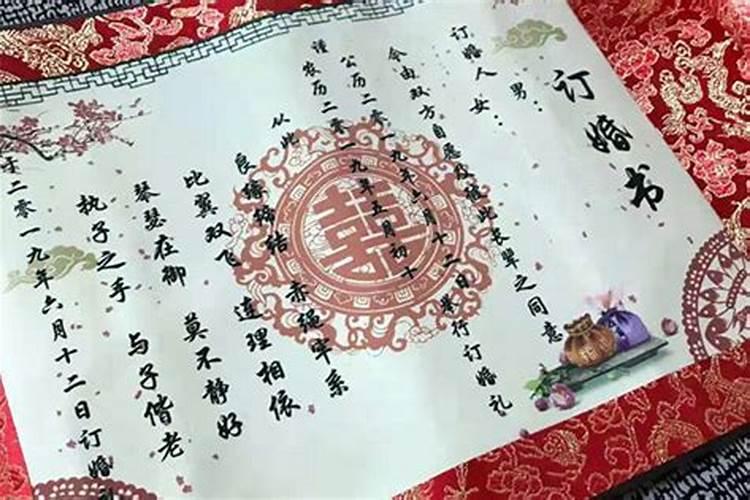 订婚书
订婚人 男：
女：
今由双方自愿及彼此长辈之同意
公历二零一九年六月十二日举行订婚礼
谨 农历二零一九年五月初十
从此 赤绳牢系
良缘缔结 连理相依
比翼双飞 莫不静好
琴瑟在御 与子偕老
执子之手
于二零一九年六月十二日订婚